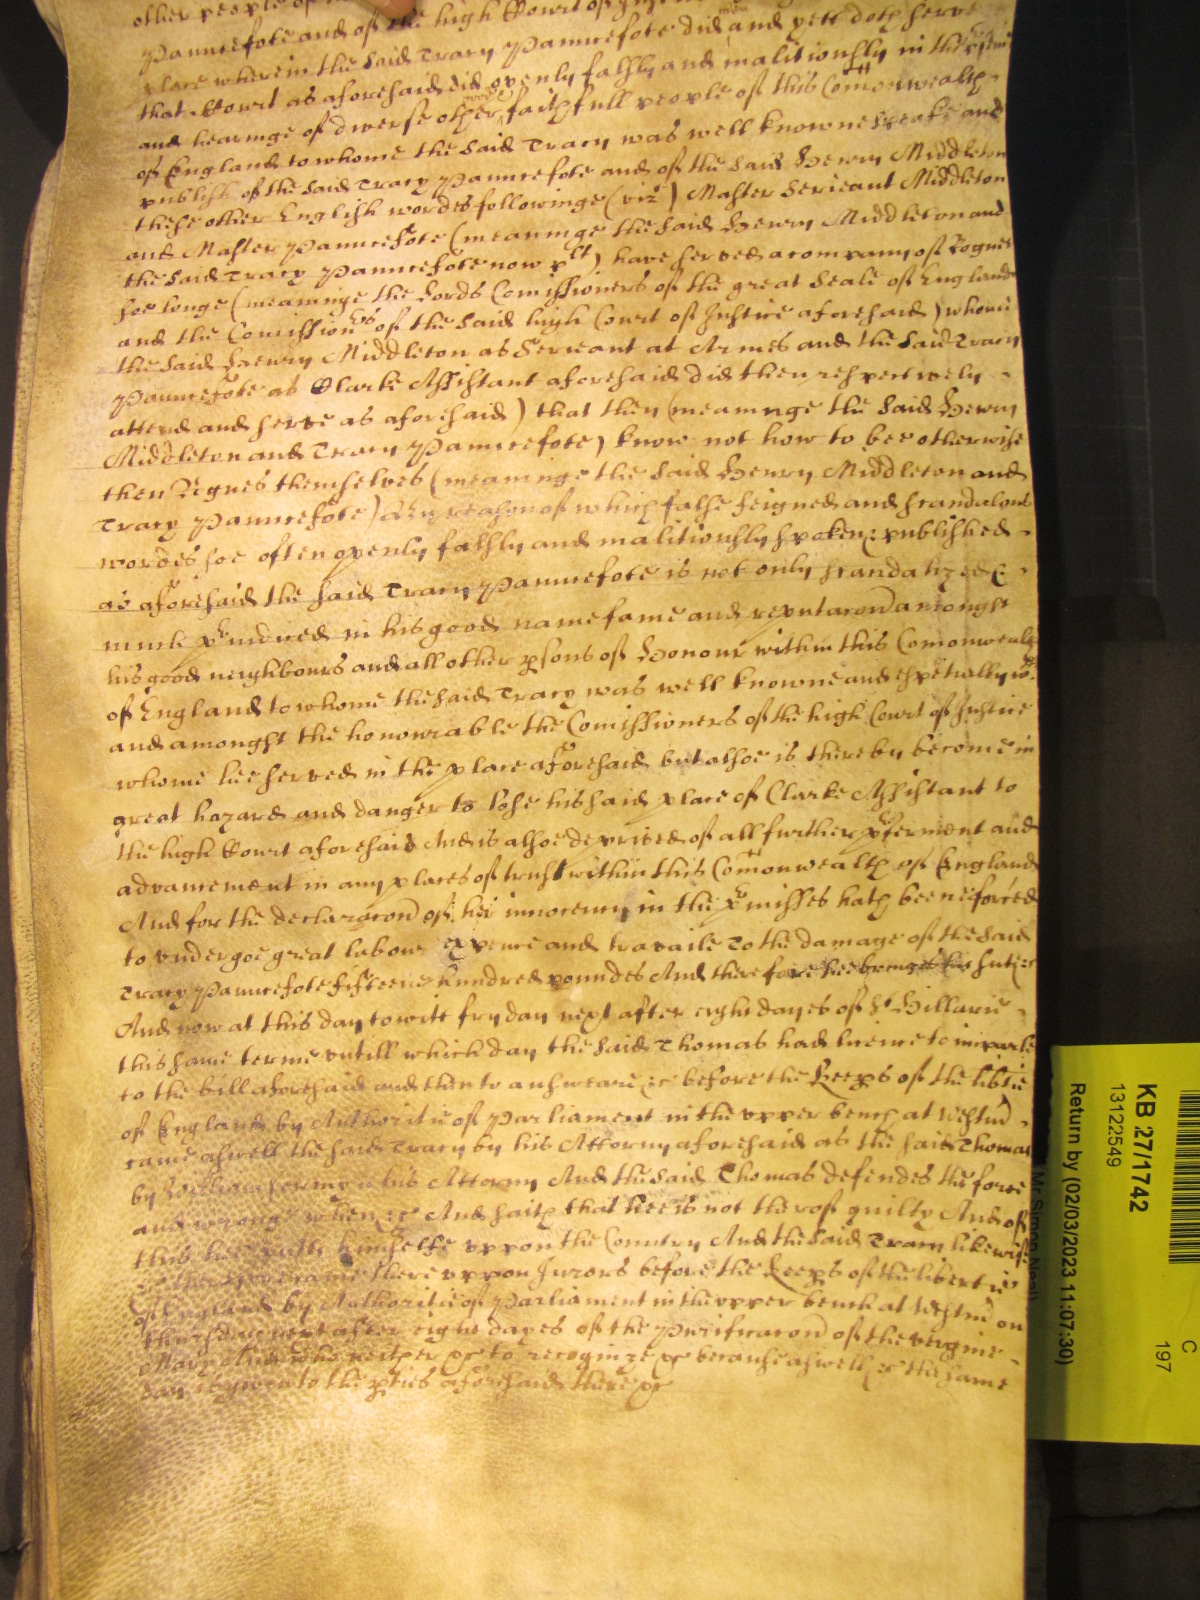 other people of
Pauncefote and of the high Court of
place wherein the said Tracy Pauncefote did then and yett doth serve
that Court as aforesaid did openly falsly and malitiously in the psence
and hearinge of diverse other faithfull people of this Comonwealth
of England to whome the said Tracy was well knowne speake and
publish of the said Tracy Pauncefote and of the said Henry Middleton
these other English wordes followinge (vizt) Master Serieant Middleton
and Master Pauncefote (meaninge the said Henry Middleton and
the said Tracy Pauncefote now plt) have served a company of Rogues
soe longe (meaninge the Lords Comissioners of the great Seale of England
and the Comissionrs of the said high Court of Justice aforesaid) whome
the said Henry Middleton as Serieant at Armes and the said Tracy
Pauncefote as Clarke Assistant aforesaid did then respectively
attend and serve as aforesaid) that they (meaninge the said Henry
Middleton and Tracy Pauncefote) know not how to bee otherwise
then Rogues themselves (meaninge the said Henry Middleton and
Tracy Pauncefote) By reason of which false feigned and scandalous
wordes soe often openly falsly and malitiously spoken & published
as aforesaid the said Tracy Pauncefote is not only scandalized &
much piudiced in his good name fame and reputacon amongst
his good neighbours and all other psons of Honour within this Comonwealth
of England to whome the said Tracy was well knowne and espetially wth
and amongst the honourable the Comissioners of the high Court of Justice
whome hee served in the place aforesaid but alsoe is thereby become in
great hazard and danger to lose his said place of Clarke Assistant to
the high Court aforesaid And is alsoe deprived of all further pferment and
advancement in any places of trust within this Comonwealth of England
And for the declaracon of his innocency in the pmisses hath beene forced
to undergoe great labour expence and travaile To the damage of the said
Tracy Pauncefote fifteene hundred poundes And therefore hee bringes his suite &c
And now at this day to witt fryday next after eight dayes of St Hillarie
this same terme untill which day the said Thomas had licence to imparle
to the bill aforesaid and then to answeare &c before the Keeps of the libtie
of England by Authoritie of Parliament in the upper bench at Westm
came aswell the said Tracy by his Attorny aforesaid as the said Thomas
by his Attorny And the said Thomas defendes the force
and wronge when &c And saith that hee is not thereof guilty And of
this hee putts himselfe uppon the Country And the said Tracy likewise
&c Therefore lett come there uppon Jurors before the Keeps of the libertie
of England by Authoritie of Parliament in the upper bench at Westm on
thursday next after eight dayes of the Purificacon of the virgine
Mary And who neither &c to recognize &c because aswell &c the same
day is given to the pties aforesaid there &c
KB 27/1742
13122549
Return by (02/03/2023 11:07:30)
Mr Simon Neal
C
197